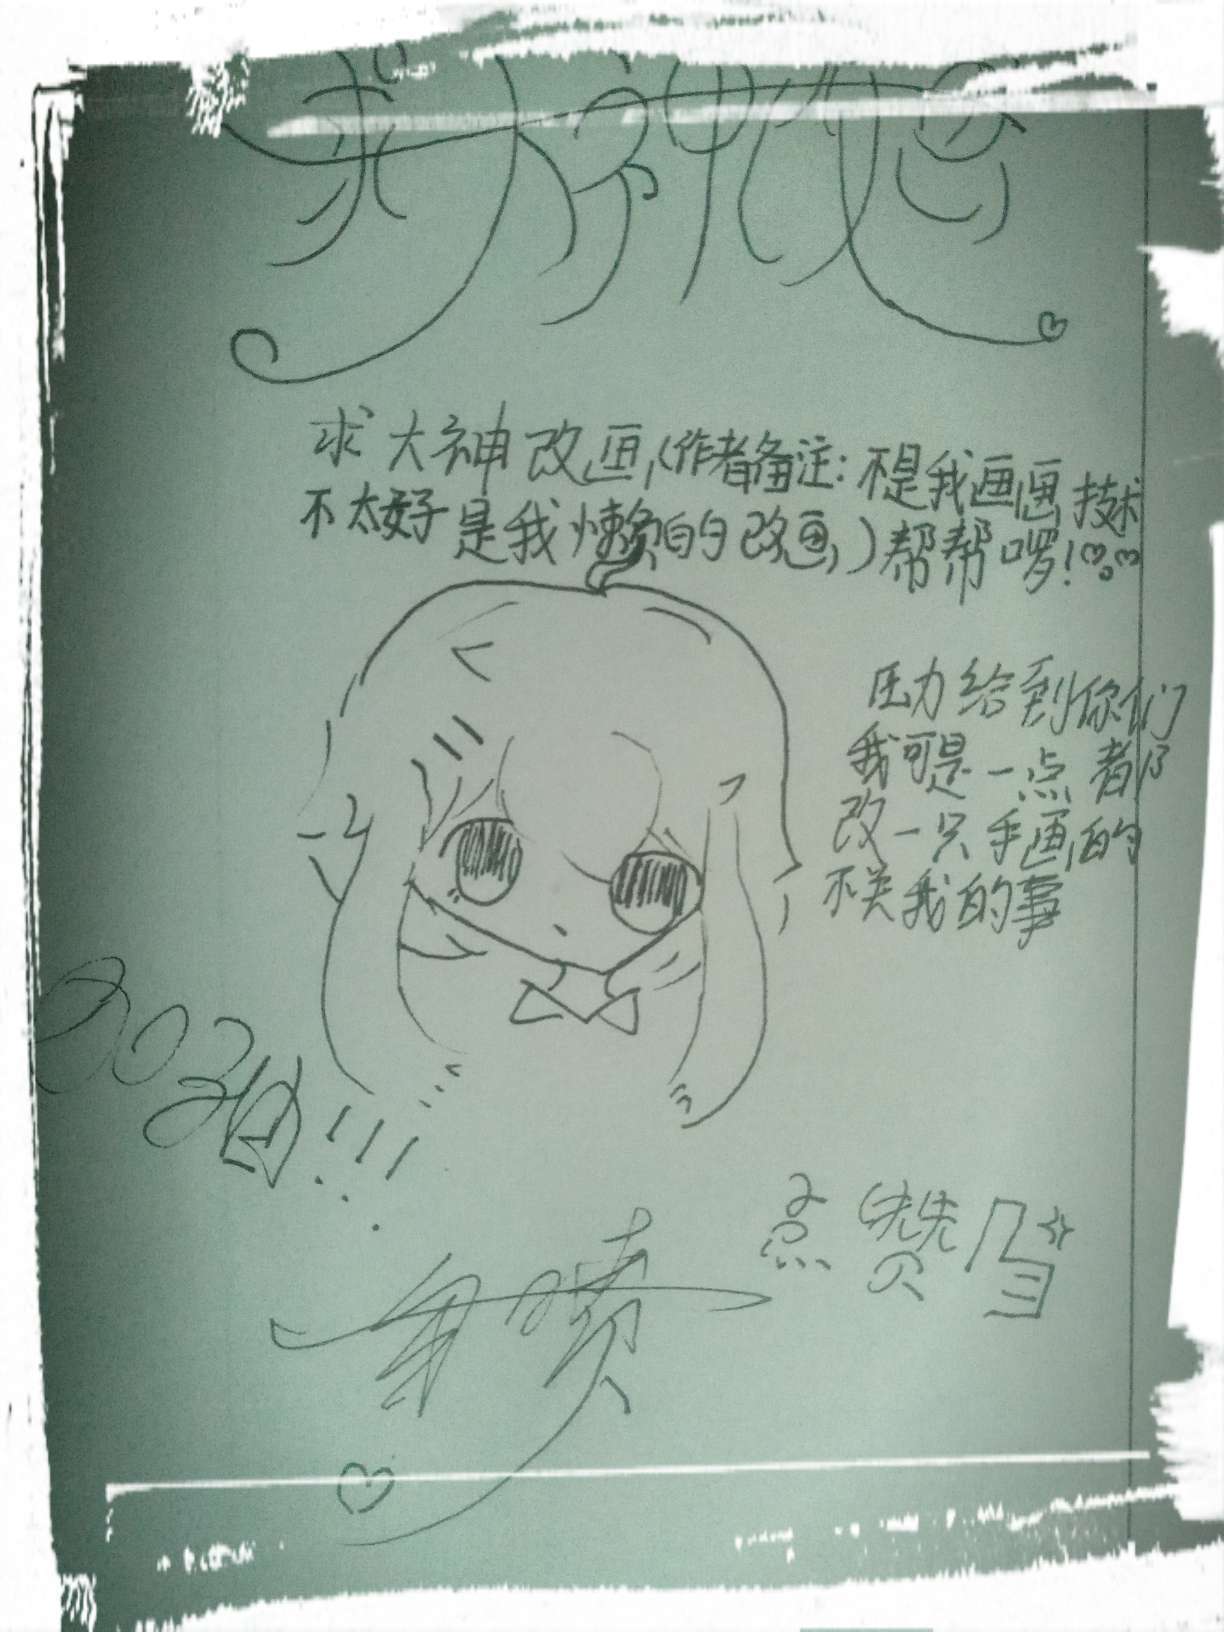 求大神改画
求大神改画,(作者备注:不是我画画技术
不太好是我懒的改画,)帮帮啰!
压力给到你们
我可是一点都
改一只手画的
不关我的事
勿喷
点赞